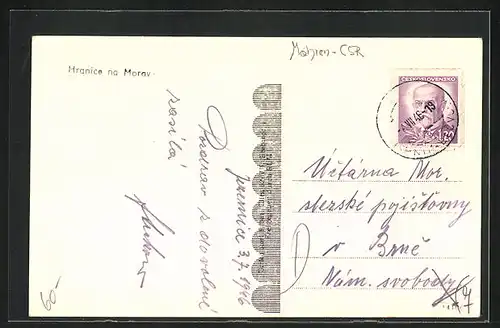 Mähren-ČSR
Hranice na Morav.
ČESKOSLOVENSKO
VII.46-18
3.7.1946
Pozdrav z dovolené
zasílá
Účtárna Mor.
slezské pojišťovny
v Brně
Nám. svobody
60-